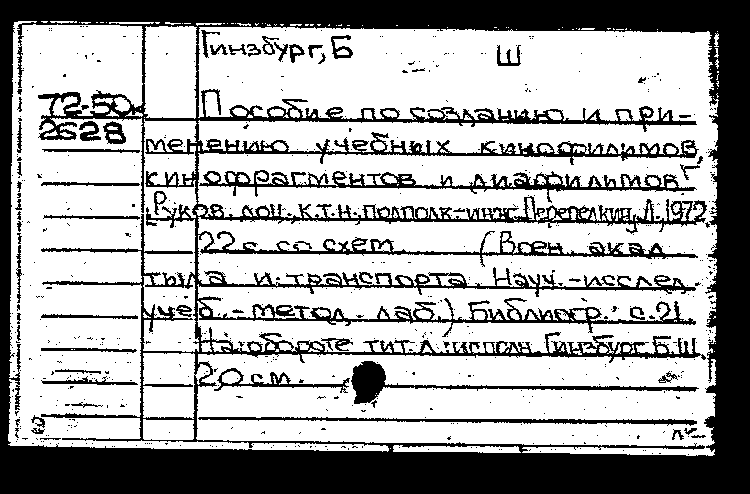 Гинзбург, Б Ш
72-50к
2628
Пособие по созданию и при-
менению учебных кинофильмов,
кинофрагментов и диафильмов
Руков. доц., к.т.н., подполк-инж. Перепелкин Л., 1972
22 с. со схем. (Воен. акад.
тыла и транспорта. Науч.-исслед.
учеб.-метод. лаб.). Библиогр.: с. 21.
На обороте тит. л.: исполн. Гинзбург Б.Ш.
20 см.